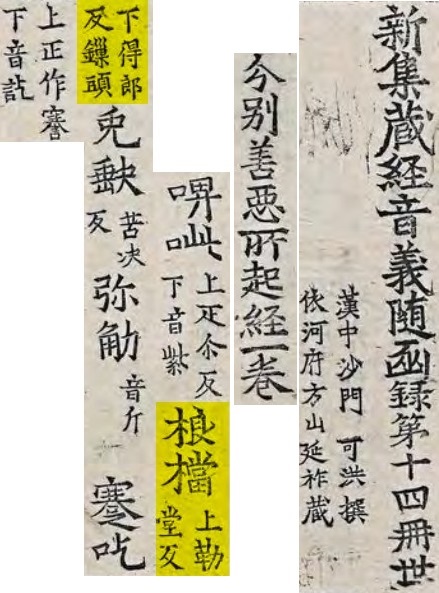 新集蔵経音義随函録第十四冊世
漢中沙門 可洪撰
依河府方山延祚蔵
分别善惡所起経一卷
呰 上疋尒反
下音紫
桹檔 上勒
堂反
下得郎
反鏁頭
兎缺 苦决
反
弥觔 音斤
蹇吃
上正作謇
下音訖